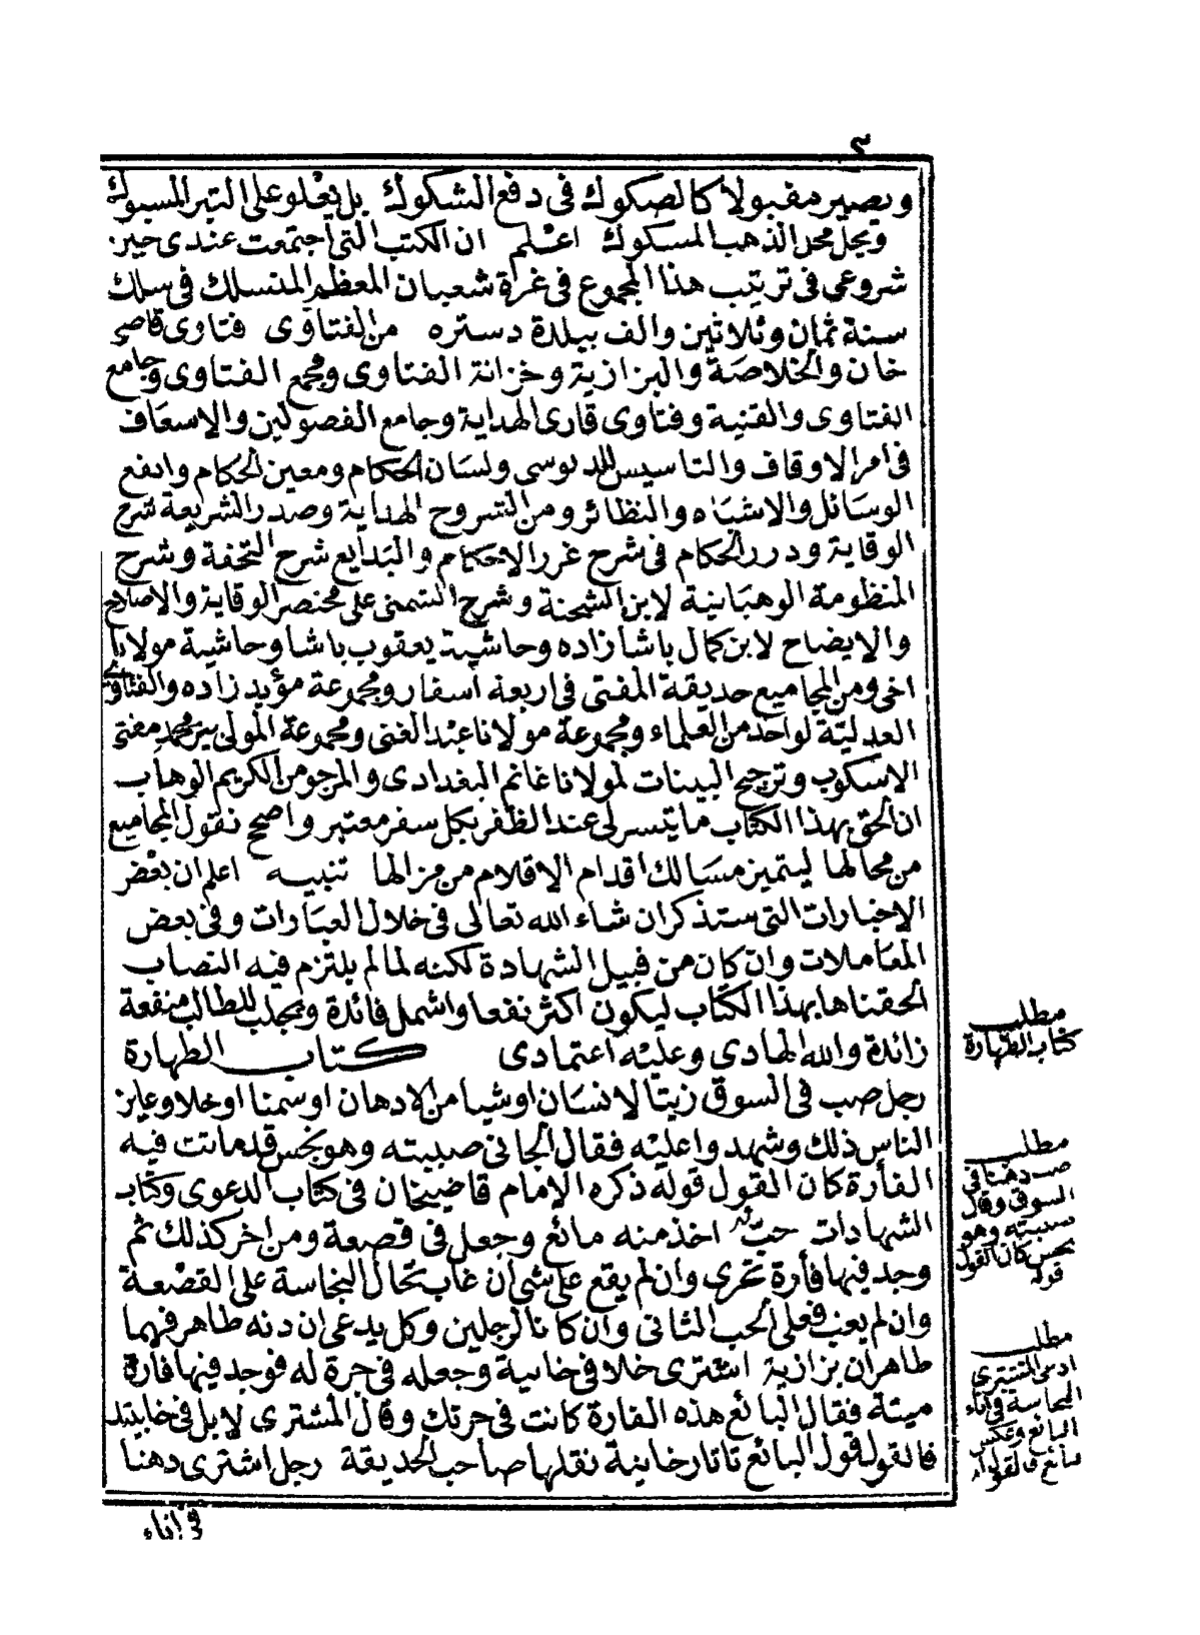 ٣
ويصير مقبولا كالصكوك فى دفع الشكوك بل يعلو على التبر المسبوك
ويحل محل الذهب المسكوك اعلم ان الكتب التى اجتمعت عندى حين
شروعى فى ترتيب هذا المجموع فى غرة شعبان المعظم المنسلك فى سلك
سنة ثمان وثلاثين والف ببلدة دستره من الفتاوى فتاوى قاضى
خان والخلاصة والبزازية وخزانة الفتاوى ومجمع الفتاوى وجامع
الفتاوى والقنية وفتاوى قارى الهداية وجامع الفصولين والاسعاف
فى امر الاوقاف والتاسيس للدبوسى ولسان الحكام ومعين الحكام وانفع
الوسائل والاشباه والنظائر ومن الشروح الهداية وصدر الشريعة شرح
الوقاية ودرر الحكام فى شرح غرر الاحكام والبدايع شرح التحفة وشرح
المنظومة الوهبانية لابن الشحنة وشرح الشمنى على مختصر الوقاية والاصلاح
والايضاح لابن كمال باشا زاده وحاشية يعقوب باشا وحاشية مولانا
اخى ومن المجاميع حديقة المفتى فى اربعة اسفار ومجموعة مؤيد زاده والفتاوى
العدلية لواحد من العلماء ومجموعة مولانا عبد الغنى ومجموعة المولى بير محمد مفتى
الاسكوب وترجيح البينات لمولانا غانم البغدادى والمرجو من الكريم الوهاب
ان الحق بهذا الكتاب ما يتيسر لى عند الظفر بكل سفر معتبر واصحح نقول المجاميع
من محالها ليتميز مسالك اقدام الاقلام من مزالها تنبيه اعلم ان بعض
الاخبارات التى ستذكر ان شاء الله تعالى فى خلال العبادات وفى بعض
المعاملات وان كان من قبيل الشهادة لكنه لما لم يلتزم فيه النصاب
الحقناها بهذا الكتاب ليكون اكثر نفعا واشمل فائدة ويجلب للطالب منفعة
زائدة والله الهادى وعليه اعتمادى كتاب الطهارة
رجل صب فى السوق زيتا لانسان او شيا من الادهان او سمنا او خلا وعاين
الناس ذلك وشهدوا عليه فقال الجانى صببته وهو نجس قد ماتت فيه
الفأرة كان القول قوله ذكره الامام قاضيخان فى كتاب الدعوى وكتاب
الشهادات حب اخذ منه مائع وجعل فى قصعة ومن اخر كذلك ثم
وجد فيها فأرة تحرى وان لم يقع على شى ان غاب تحال النجاسة على القصعة
وان لم يغب فعلى الحب الثانى وان كانا لرجلين وكل يدعى ان دنه طاهر فهما
طاهران بزازية اشترى خلا فى خابية وجعله فى جرة له فوجد فيها فأرة
ميتة فقال البائع هذه الفارة كانت فى جرتك وقال المشترى لا بل فى خابيتك
فالقول قول البائع تاتارخانية نقلها صاحب الحديقة رجل اشترى دهنا
فى اناء
مطلب
كتاب الطهارة
مطلب
صب دهنا فى
السوق وقال
صببته وهو
نجس كان القول
قوله
مطلب
ادعى المشترى
النجاسة فى اناء
البائع وعكس
البائع فالقول له